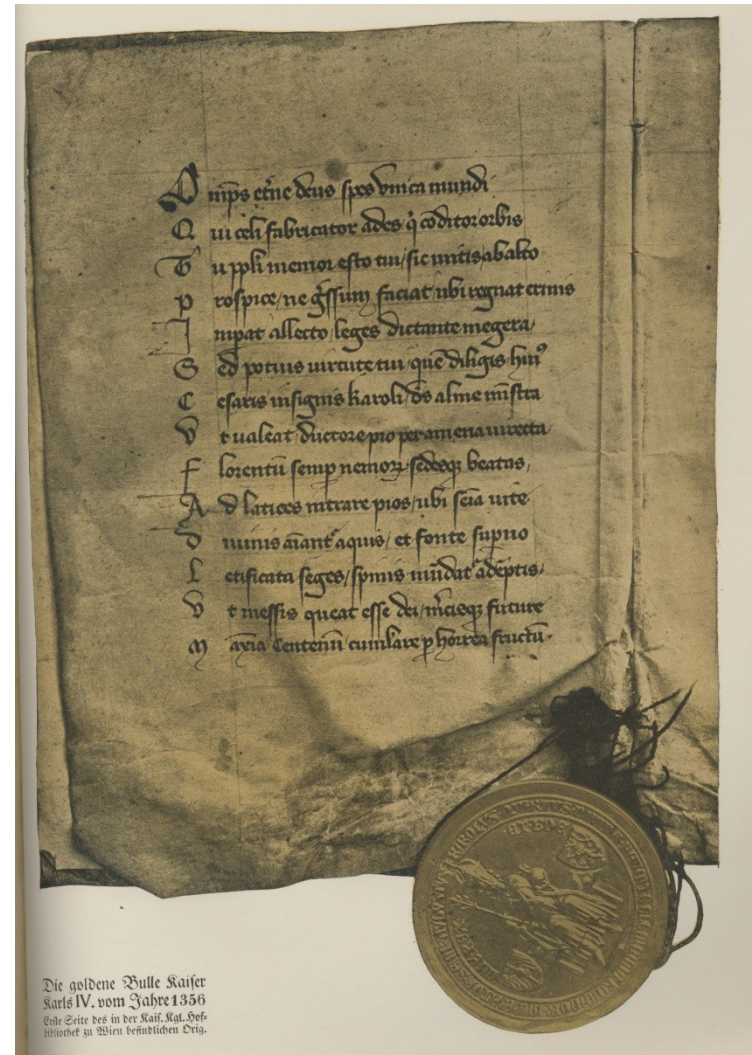 Om̅ps et̅ne deus spes vnica mundi
Qui celi fabricator ades, qi co̅ditor orbis
Tu ppli memor esto tui/ sic mitis ab alto
Prospice/ ne gͥssum faciat/ ubi regnat erinis
Impat allecto/ leges dictante megera/
Sed potius uirtute tui/ que̅ diligis/ huiꝰ
Cesaris insignis karoli/ ds alme mi̅stra
Vt ualeat ductore pio per amena uirecta
Florentu̅ semp nemoꝝ sedesqꝫ beatas/
Ad latices intrare pios/ ubi se̅ia uite
Diuinis ai̅antᷣ aquis/ et fonte supno
Letificata seges/ spinis mu̅datᷣ ade̅ptis/
Vt messis queat esse dei/ mͨcisqꝫ future
Maxia Centenu̅ cumlare p horrea fructu̅.
Die goldene Bulle Kaiser
Karls IV. vom Jahre 1356
Erste Seite des in der Kais. Kgl. Hof-
bibliothek zu Wien befindlichen Orig.